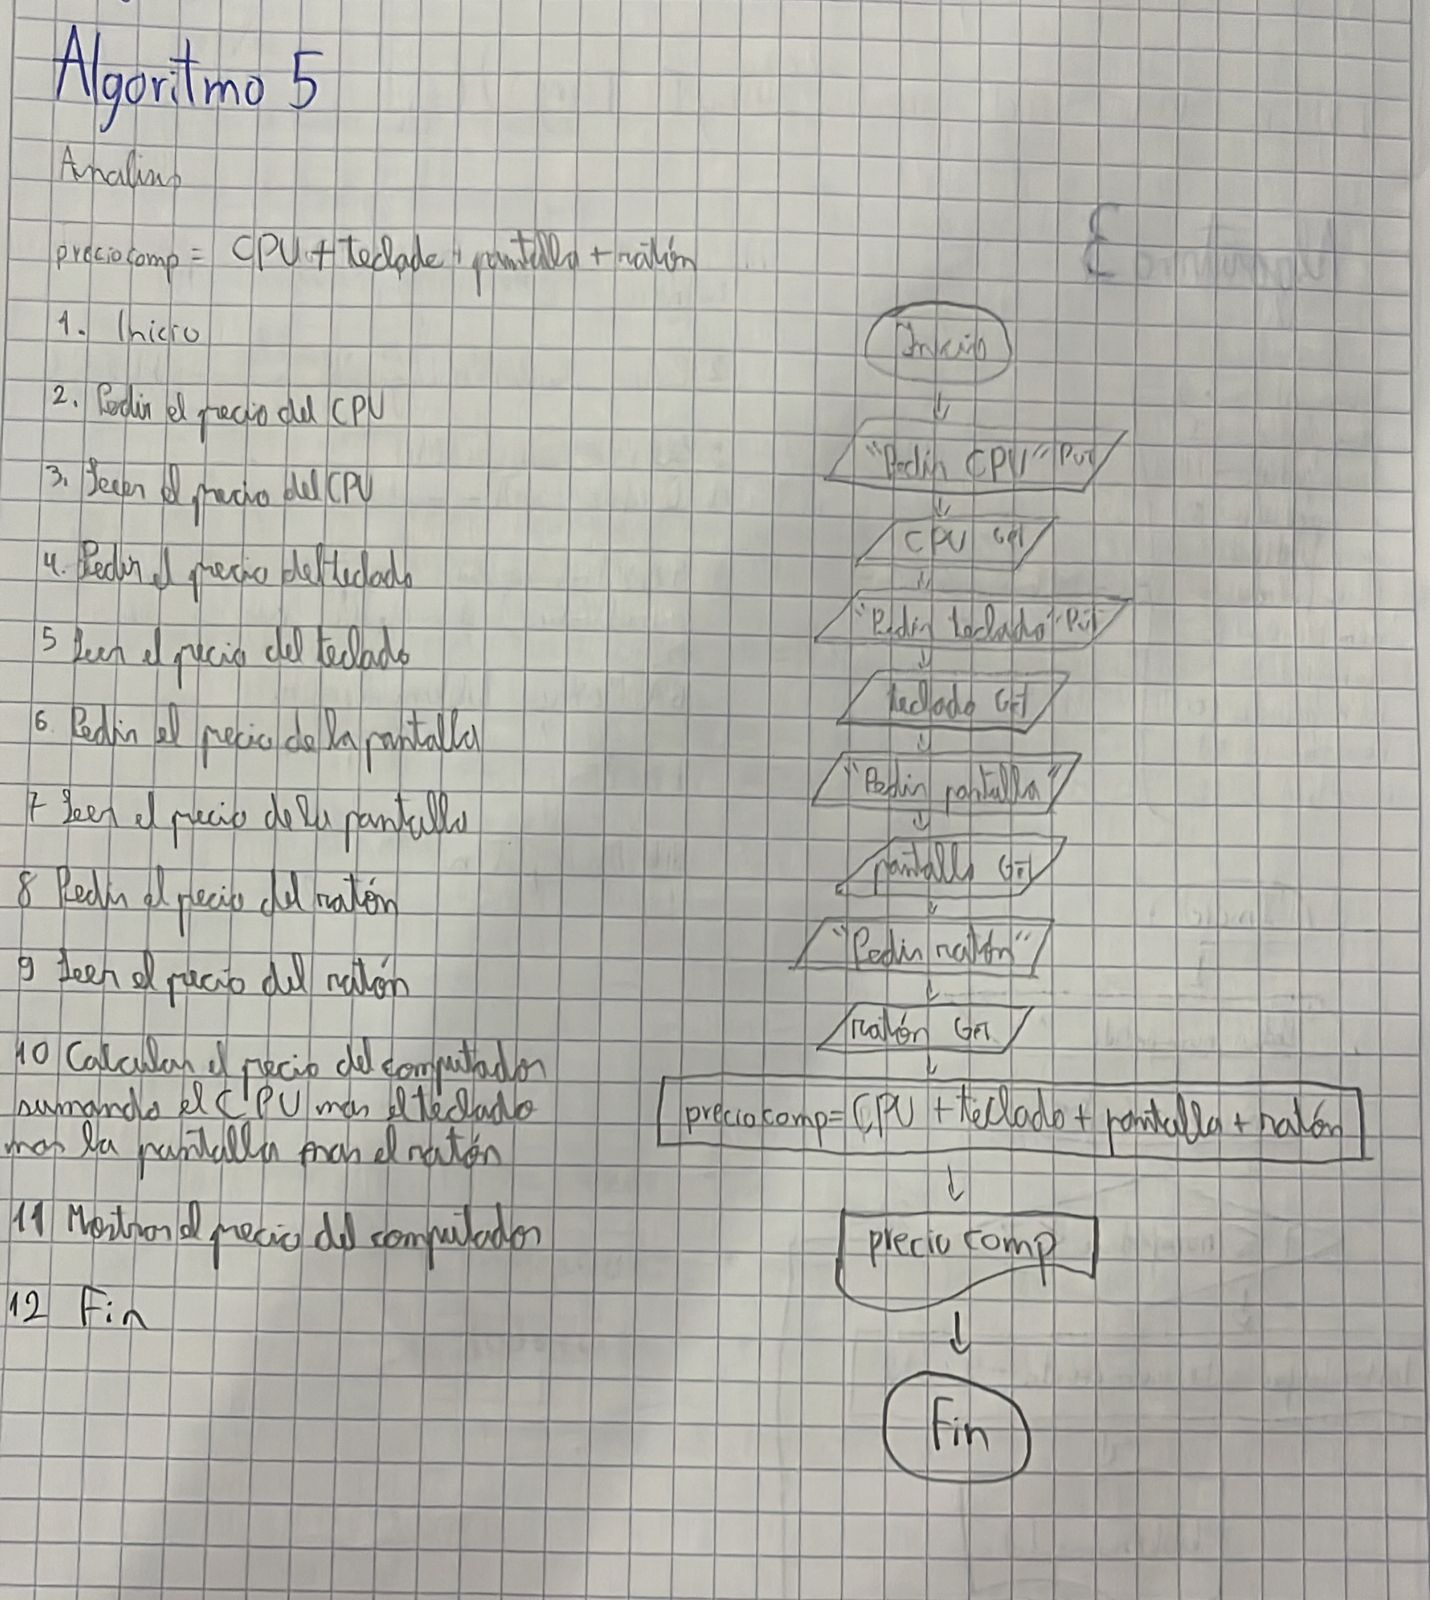 Algoritmo 5
Analisis
preciocomp = CPU + teclado + pantalla + ratón
1. Inicio
2. Pedir el precio del CPU
3. Leer el precio del CPU
4. Pedir el precio del teclado
5 Leer el precio del teclado
6 Pedir el precio de la pantalla
7 Leer el precio de la pantalla
8 Pedir el precio del ratón
9 Leer el precio del ratón
10 Calcular el precio del computador
sumando el CPU mas el teclado
mas la pantalla mas el ratón
11 Mostrar el precio del computador
12 Fin
Inicio
"Pedir CPU" Put
CPU Get
"Pedir teclado" Put
teclado GET
"Pedir pantalla"
pantalla GET
"Pedir ratón"
ratón GET
preciocomp = CPU + teclado + pantalla + ratón
precio comp
Fin